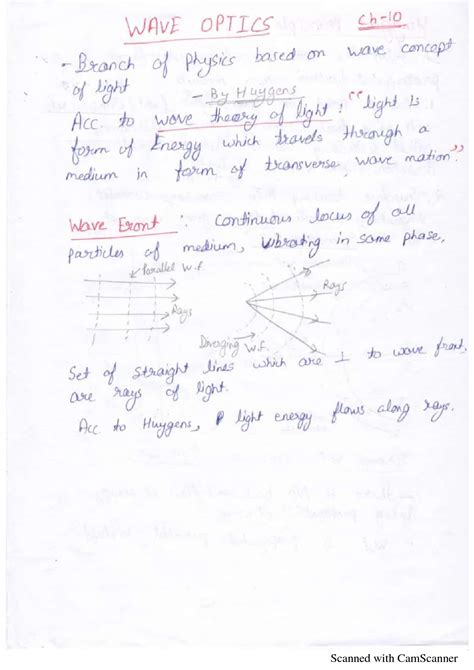 WAVE OPTICS Ch-10
- Branch of Physics based on wave concept
of light - By Huygens
Acc. to wave theory of light, "light is
form of Energy which travels through a
medium in form of transverse wave mation".
Wave Front : Continuous locus of all
particles of medium, vibrating in same phase.
Parallel W.f.
Rays
Rays
Diverging W.f.
Set of straight lines which are ⊥ to wave front,
are rays of light.
Acc to Huygens, light energy flows along rays.
Scanned with CamScanner